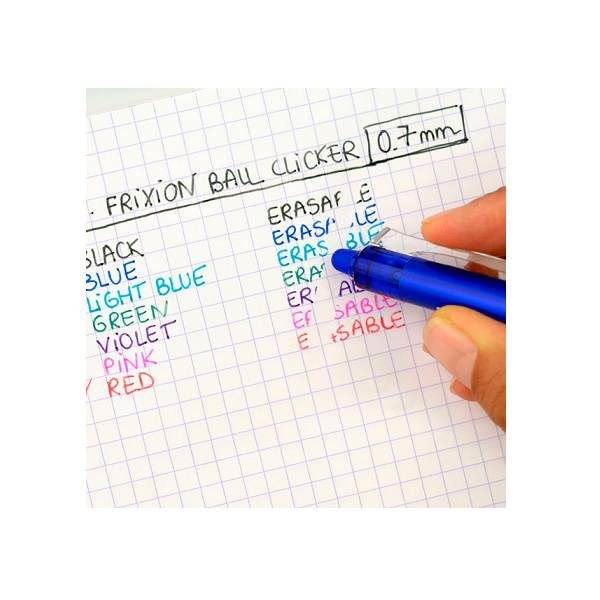 . FRIXION BALL CLICKER 0.7mm
BLACK
BLUE
LIGHT BLUE
GREEN
VIOLET
PINK
Y RED
ERASA LE
ERAS LE
ERAS BLE
ERA
ER AB
ER SABLE
E SABLE